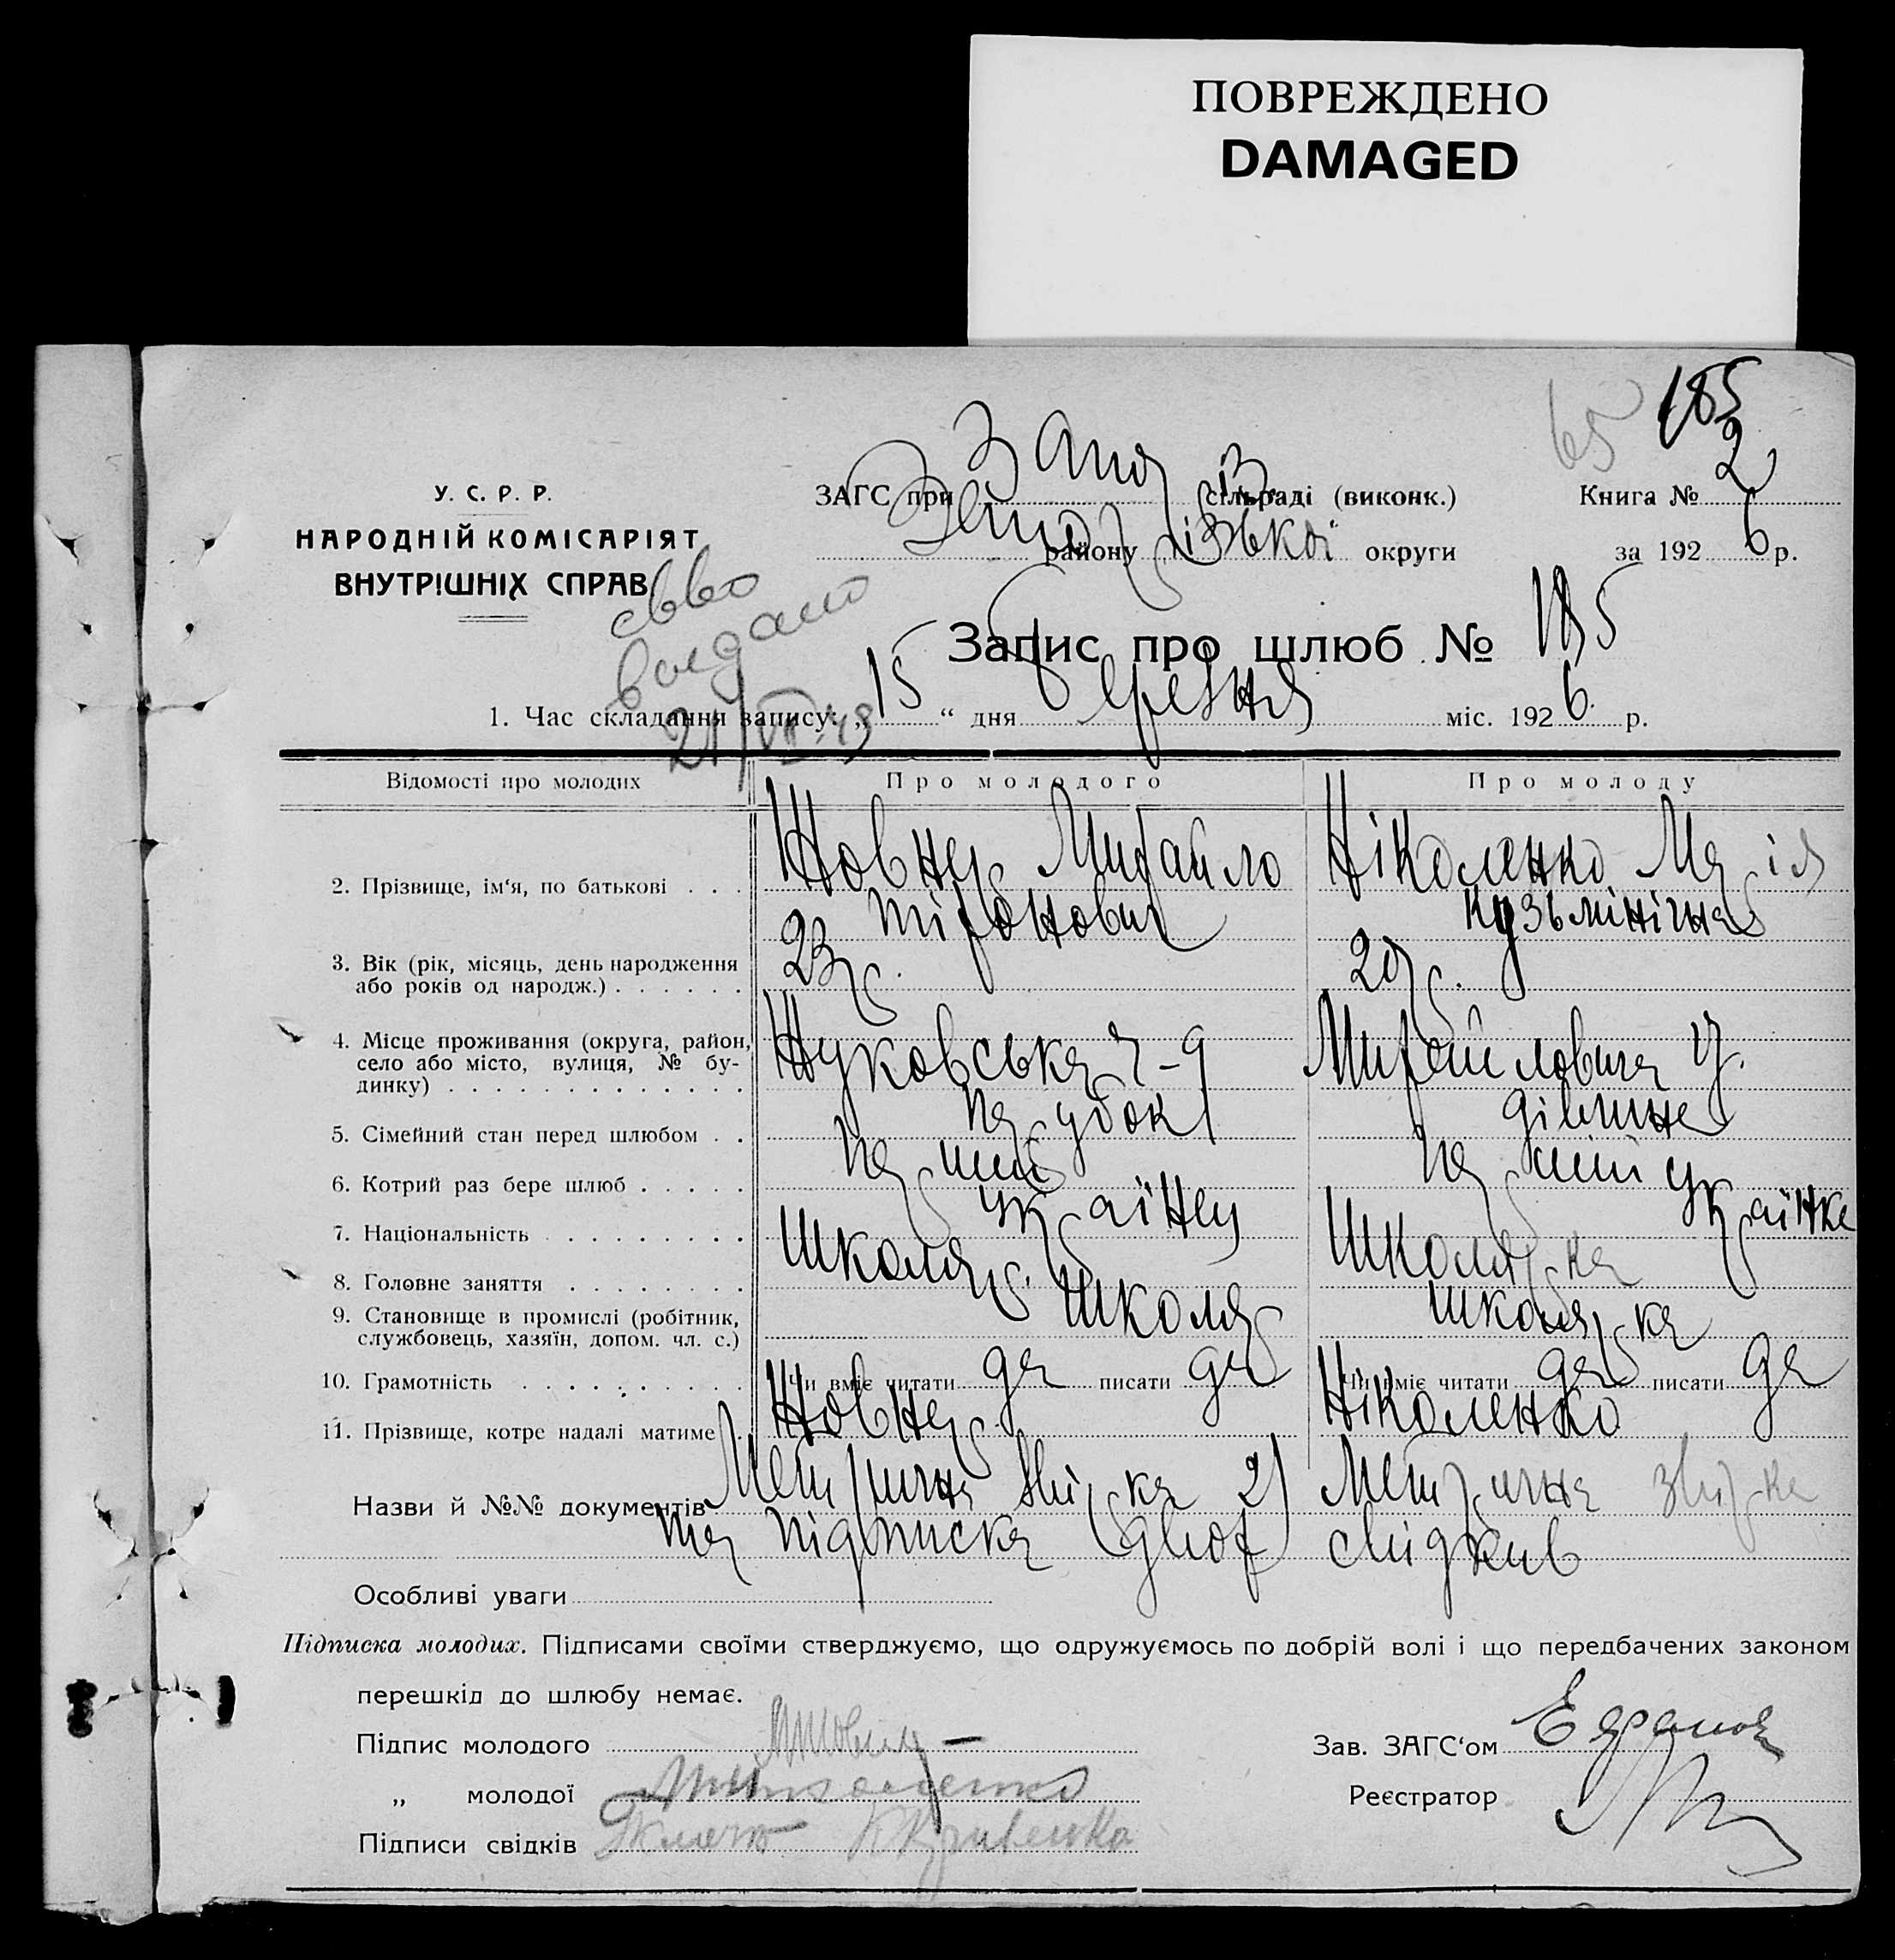 ПОВРЕЖДЕНО
DAMAGED
65 185
У. С. Р. Р.
НАРОДНІЙ КОМІСАРІЯТ
ВНУТРІШНІХ СПРАВ
ЗАГС при сільраді (виконк.) Книга № 2
району округи за 1926 р.
Запис про шлюб № 185
1. Час складання запису: „15“ дня березня міс. 1926 р.
Відомості про молодих Про молодого Про молоду
2. Прізвище, ім‘я, по батькові . . . Жовнер Михайло Ніколенко Марія
Миронович Кузьмінічна
3. Вік (рік, місяць, день народження
або років од народж.) . . . . . . 23 р. 20 р.
4. Місце проживання (округа, район,
село або місто, вулиця, № бу-
динку) . . . . . . . . . . . . . Жуковська Михайловича
5. Сімейний стан перед шлюбом . . парубок дівчина
6. Котрий раз бере шлюб . . . . . перший перший
7. Національність . . . . . . . . . українец українка
8. Головне заняття . . . . . . . . школяр школярка
9. Становище в промислі (робітник,
службовець, хазяїн, допом. чл. с.) школяр школярка
10. Грамотність . . . . . . . . . . Чи вміє читати да писати да Чи вміє читати да писати да
11. Прізвище, котре надалі матиме . Жовнер Ніколенко
Назви й №№ документів Метрична 2) Метрична
та підписка двох свідків
Особливі уваги
Підписка молодих. Підписами своїми стверджуємо, що одружуємось по добрій волі і що передбачених законом
перешкід до шлюбу немає.
Підпис молодого Зав. ЗАГС‘ом
„ молодої Реєстратор
Підписи свідків